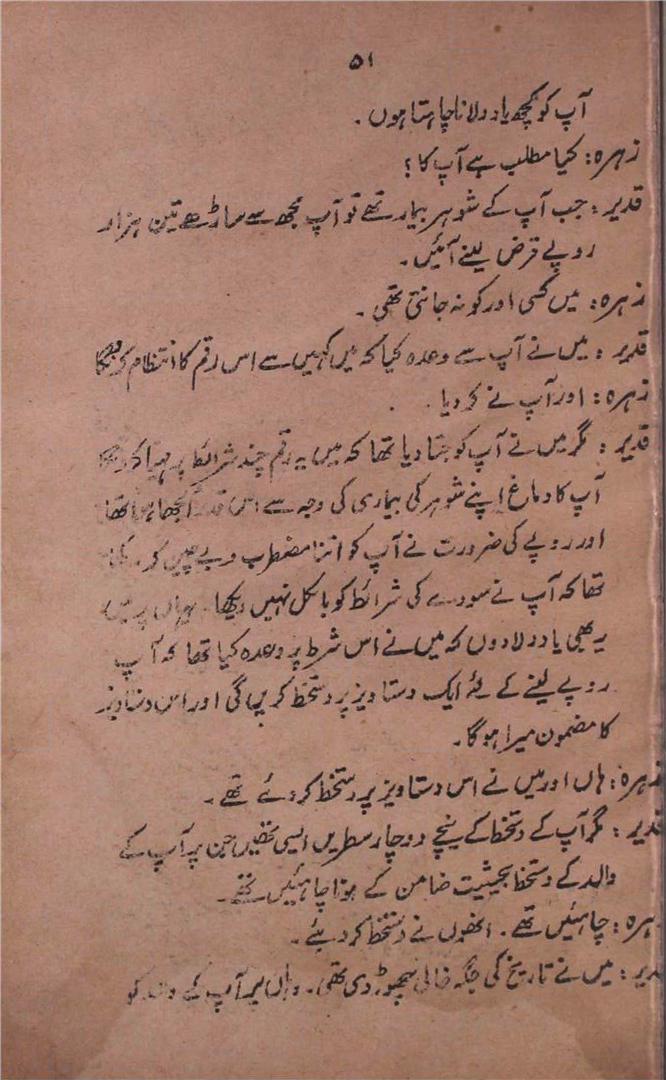 ۵۱
آپ کو کچھ یاد دلانا چاہتا ہوں۔
زہرہ: کیا مطلب ہے آپ کا؟
قدیر: جب آپ کے شوہر بیمار تھے تو آپ مجھ سے ساڑھے تین ہزار
روپے قرض لینے آئیں۔
زہرہ: میں کسی اور کو نہ جانتی تھی۔
قدیر: میں نے آپ سے وعدہ کیا کہ میں کہیں سے اس رقم کا انتظام کر دونگا
زہرہ: اور آپ نے کر دیا۔
قدیر: مگر میں نے آپ کو جتا دیا تھا کہ میں یہ رقم چند شرائط پر مہیا
آپ کا دماغ اپنے شوہر کی بیماری کی وجہ سے اس قدر الجھا ہوا تھا
اور روپے کی ضرورت نے آپ کو اتنا مضطرب و بے چین کر
تھا کہ آپ نے سودے کی شرائط کو بالکل نہیں دیکھا۔ یہاں پر میں
یہ بھی یاد دلا دوں کہ میں نے اس شرط پر وعدہ کیا تھا کہ آپ
روپے لینے کے لئے ایک دستاویز پر دستخط کریں گی اور اس دستاویز
کا مضمون میرا ہوگا۔
زہرہ: ہاں اور میں نے اس دستاویز پر دستخط کر دئے تھے۔
قدیر: مگر آپ کے دستخط کے نیچے دو چار سطریں ایسی تھیں جن پر آپ کے
والد کے دستخط بحیثیت ضامن کے ہونا چاہئیں تھے۔
زہرہ: چاہئیں تھے۔ انھوں نے دستخط کر دیئے۔
قدیر: میں نے تاریخ کی جگہ خالی چھوڑ دی تھی۔ وہاں پر آپ کے والد کو